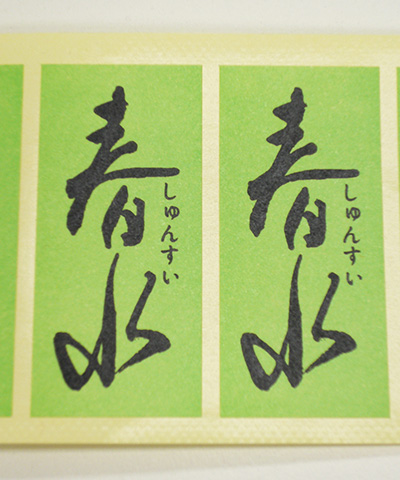 春水
しゅんすい
春水
しゅんすい